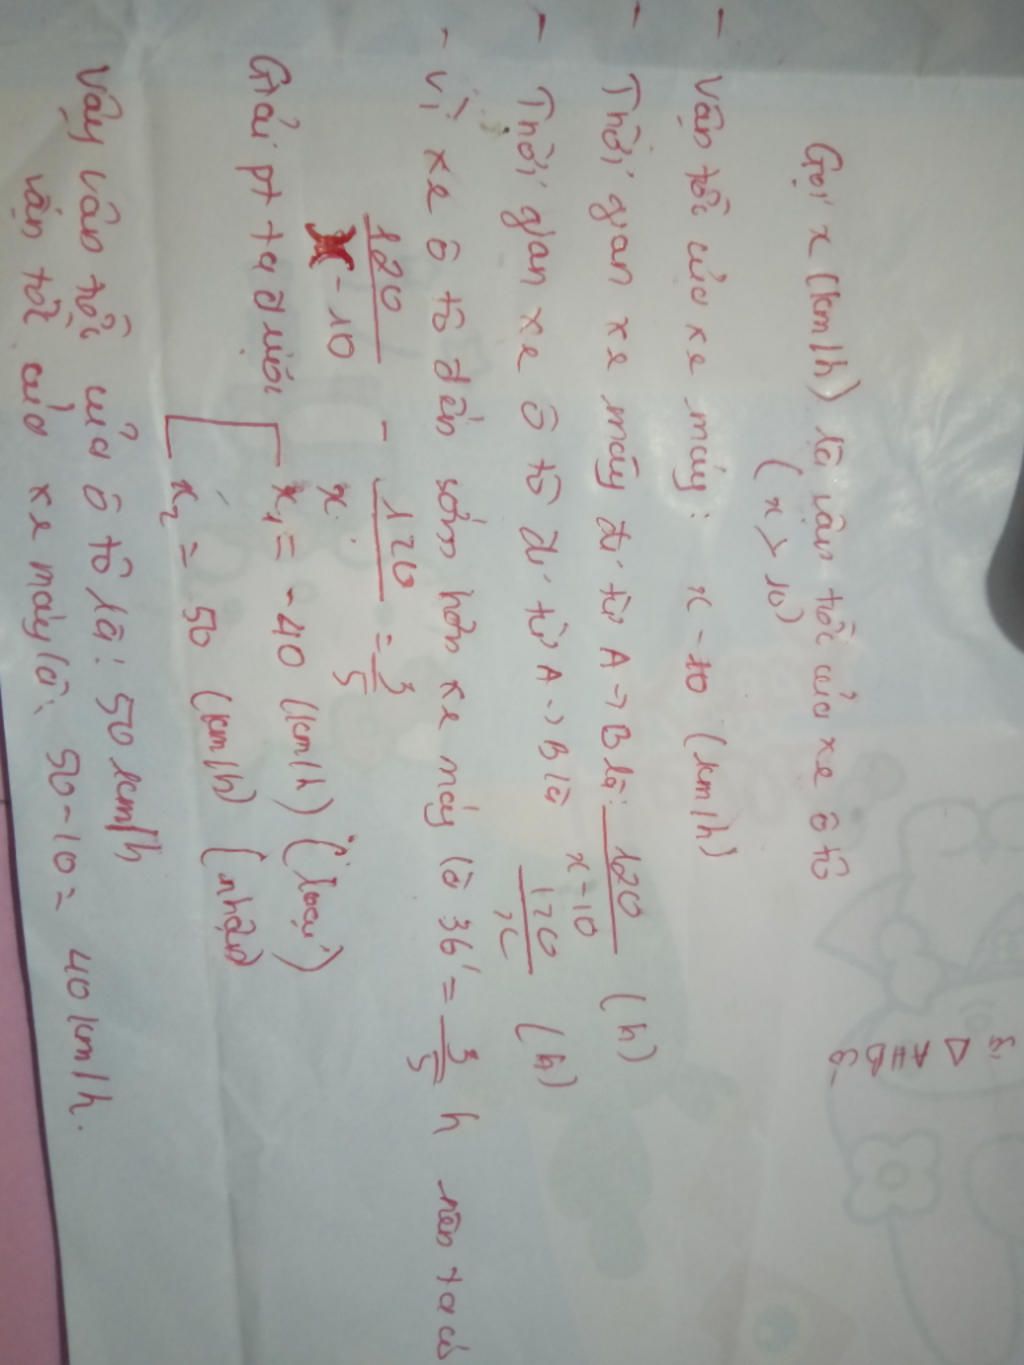 Gọi x (km/h) là vận tốc của xe ô tô
(x > 10)
- Vận tốc của xe máy: x - 10 (km/h)
- Thời gian xe máy đi từ A → B là: 120/x-10 (h)
- Thời gian xe ô tô đi từ A → B là 120/x (h)
- Vì xe ô tô đến sớm hơn xe máy là 36' = 3/5 h nên ta có
120/x-10 - 120/x = 3/5
Giải pt ta được [ x₁ = -40 (km/h) (loại)
x₂ = 50 (km/h) (nhận)
Vậy vận tốc của ô tô là: 50 km/h
vận tốc của xe máy là: 50-10 = 40 km/h.